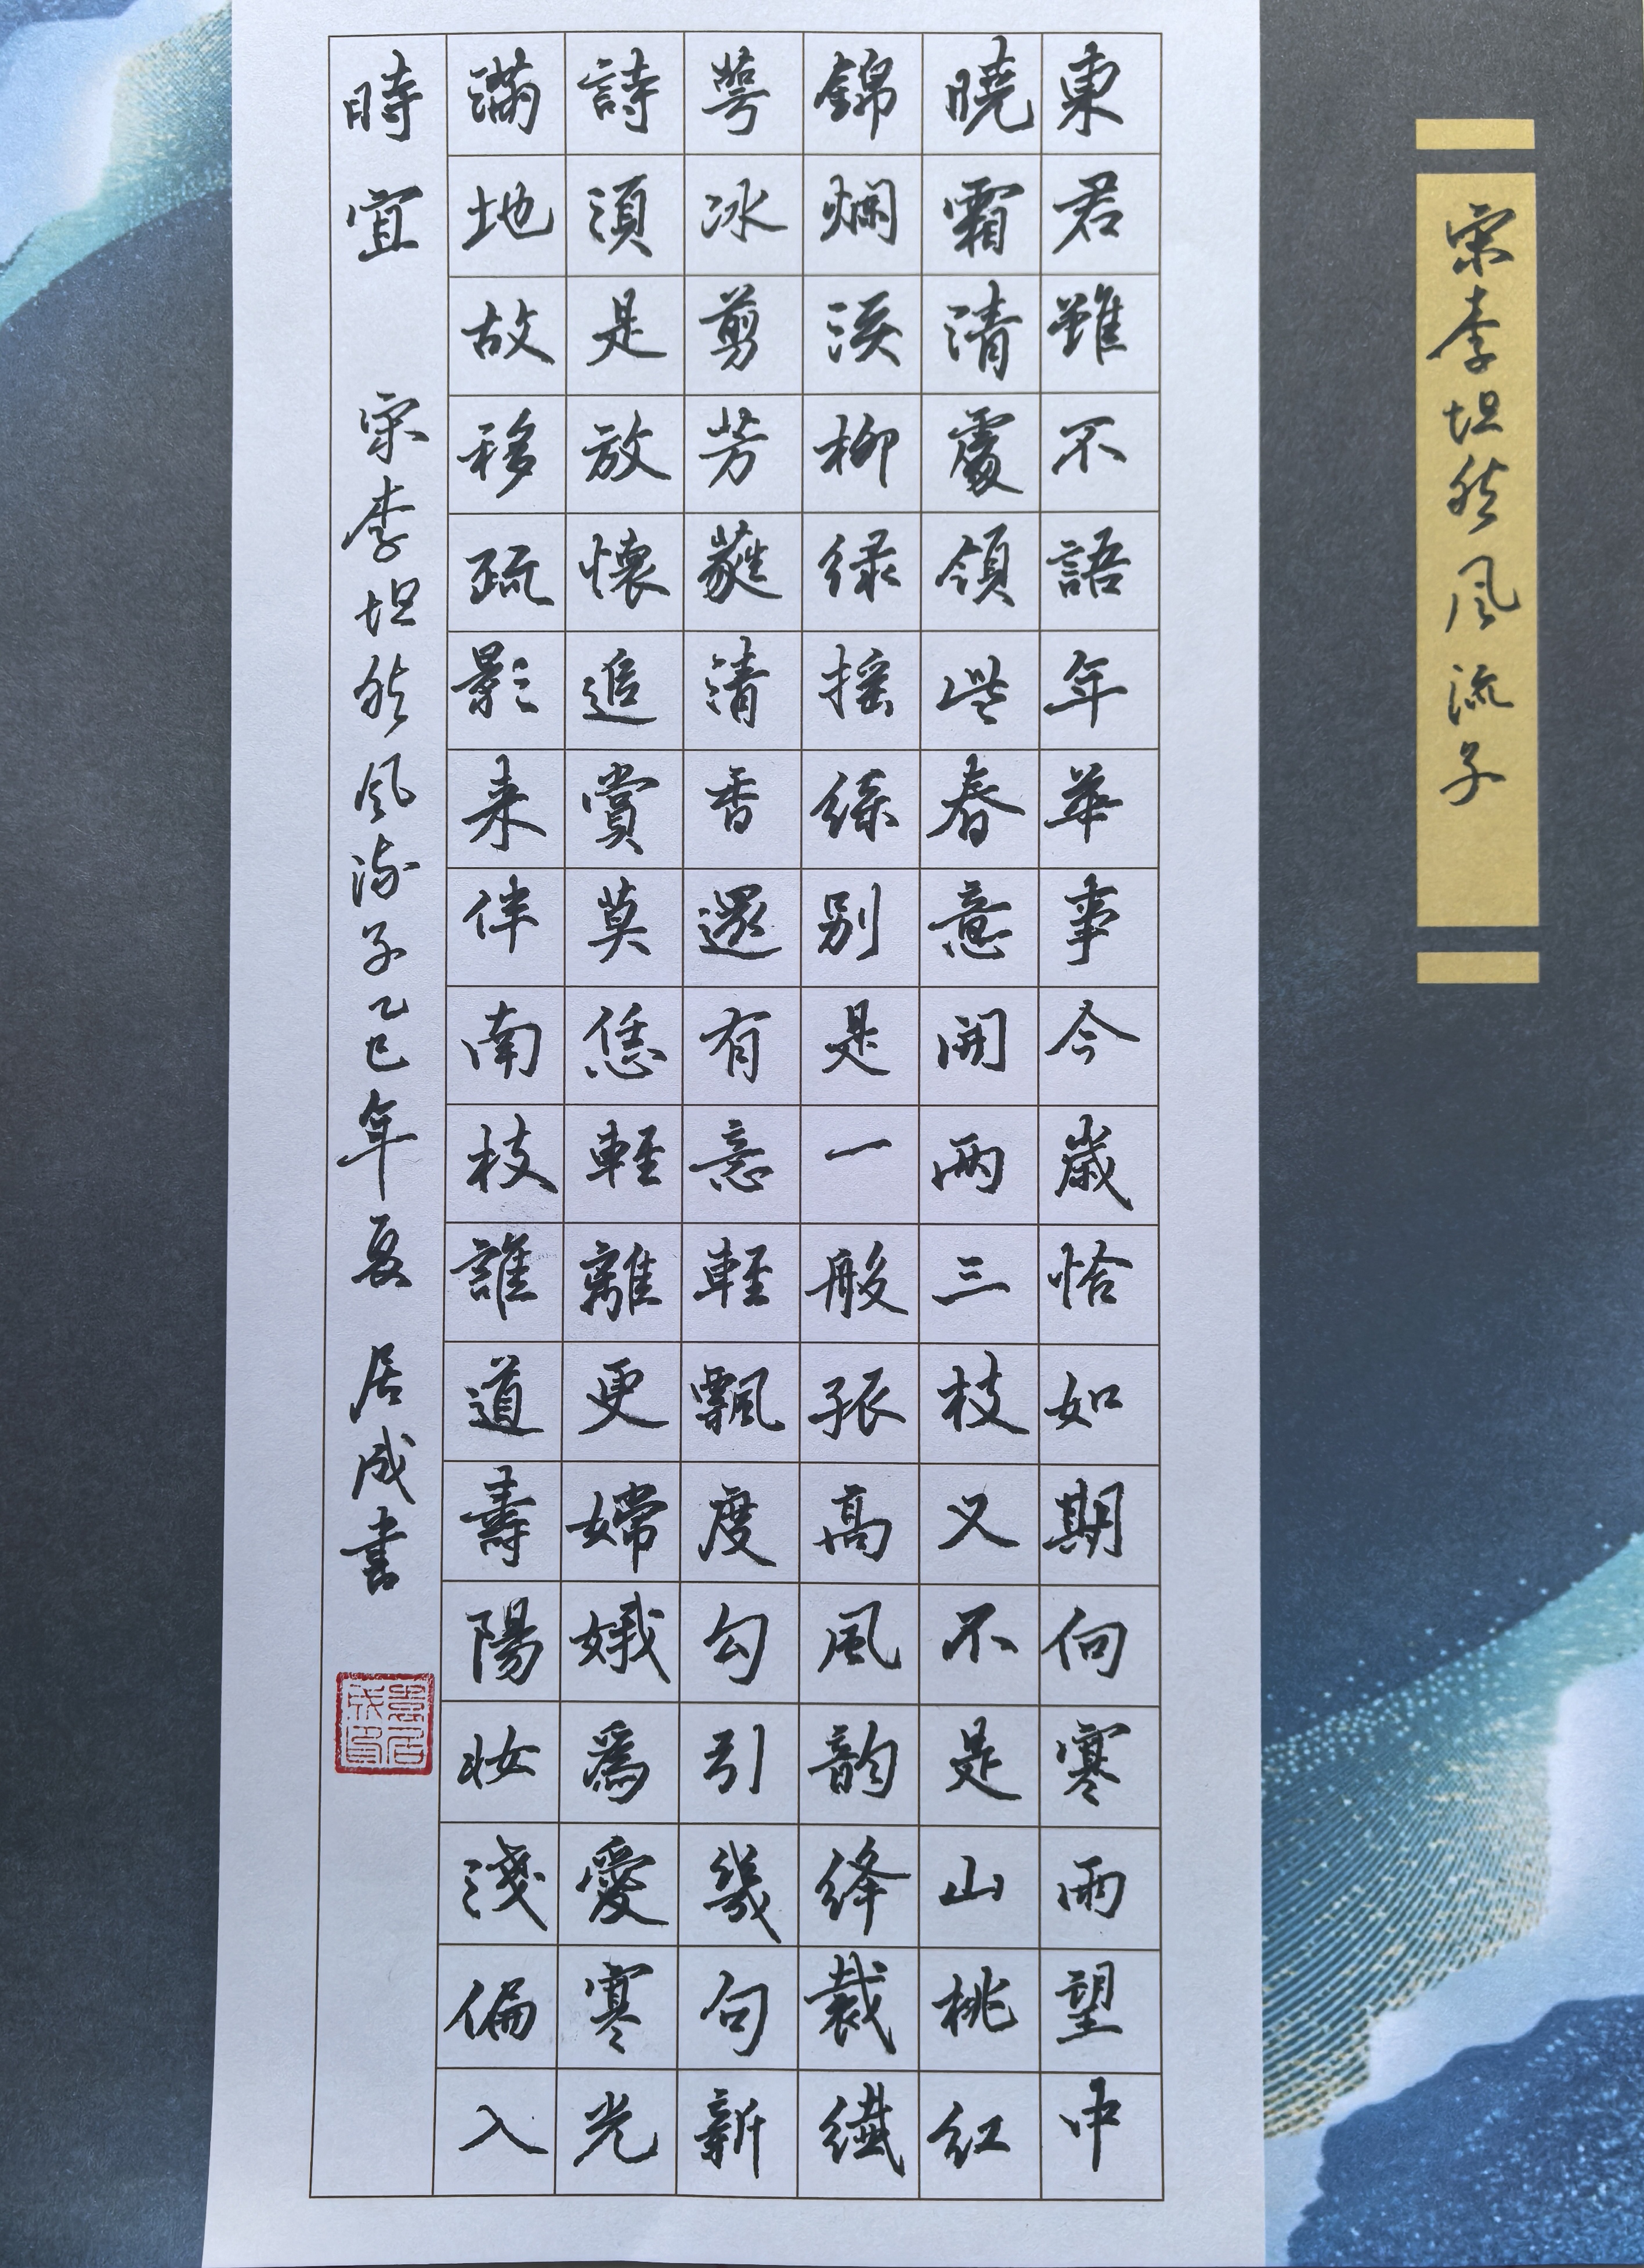 宋李坦然風流子
東君雖不語年華事今歲恰如期向寒雨望中
曉霜清處領些春意開兩三枝又不是山桃紅
錦爛渓柳緑摇絲别是一般孤高風韵絳裁纖
萼冰剪芳蕤清香還有意輕飄度勾引幾句新
詩須是放懷追賞莫恁輕離更嫦娥爲愛寒光
滿地故移疏影来伴南枝誰道壽陽妝淺偏入
時宜 宋李坦然風流子乙巳年夏 居成書